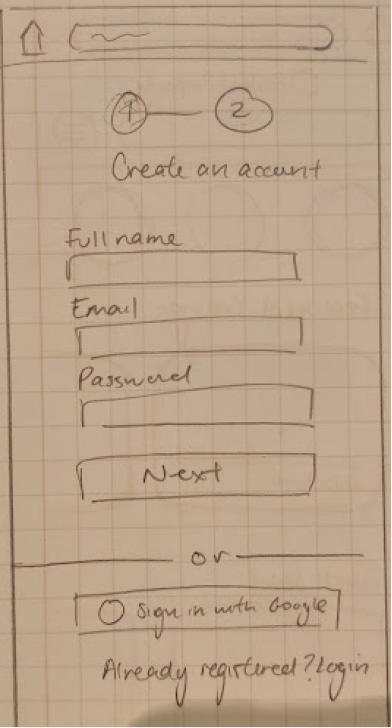 1 2
Create an account
Full name
Email
Password
Next
or
Sign in with Google
Already registered? Login